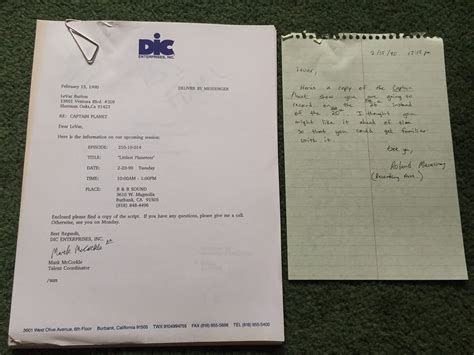 DiC
ENTERPRISES, INC.
February 15, 1990
DELIVER BY MESSENGER
LeVar Burton
13601 Ventura Blvd. #209
Sherman Oaks, Ca 91423
RE: CAPTAIN PLANET
Dear LeVar,
Here is the information on our upcoming session:
EPISODE: 210-10-014
TITLE: "Littlest Planeteer"
DATE: 2-20-90 Tuesday
TIME: 10:00AM - 1:00PM
PLACE: B & B SOUND
3610 W. Magnolia
Burbank, CA 91505
(818) 848-4496
Enclosed please find a copy of the script. If you have any questions, please give me a call.
Otherwise, see you on Monday.
Best Regards,
DIC ENTERPRISES, INC.
Mark McCorkle
Mark McCorkle
Talent Coordinator
3601 West Olive Avenue, 6th Floor Burbank, California 91505 FAX (818) 955-5400
2/15/90
LeVar,
Here's a copy of the Captain
Planet show you are going to
record on the 26 instead
of the 20. I thought you
might like it ahead of time
so that you could get familiar
with it.
See you,
(Recording Dept.)